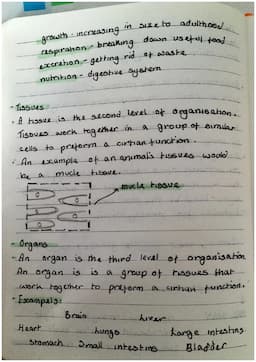 growth - increasing in size to adulthood
respiration - breaking down useful food
excretion - getting rid of waste
nutrition - digestive system
- Tissues
· A tissue is the second level of organisation.
Tissues work together in a group of similar
cells to preform a cirtian function.
· An example of an animals tissues would
be a mucle tissue.
mucle tissue
- Organs
- An organ is the third level of organisation
An organ is is a group of tissues that
work together to preform a cirtian function.
- Exampels:
Brain Liver
Heart Lungs Large intestins
Stomach Small intestins Bladder